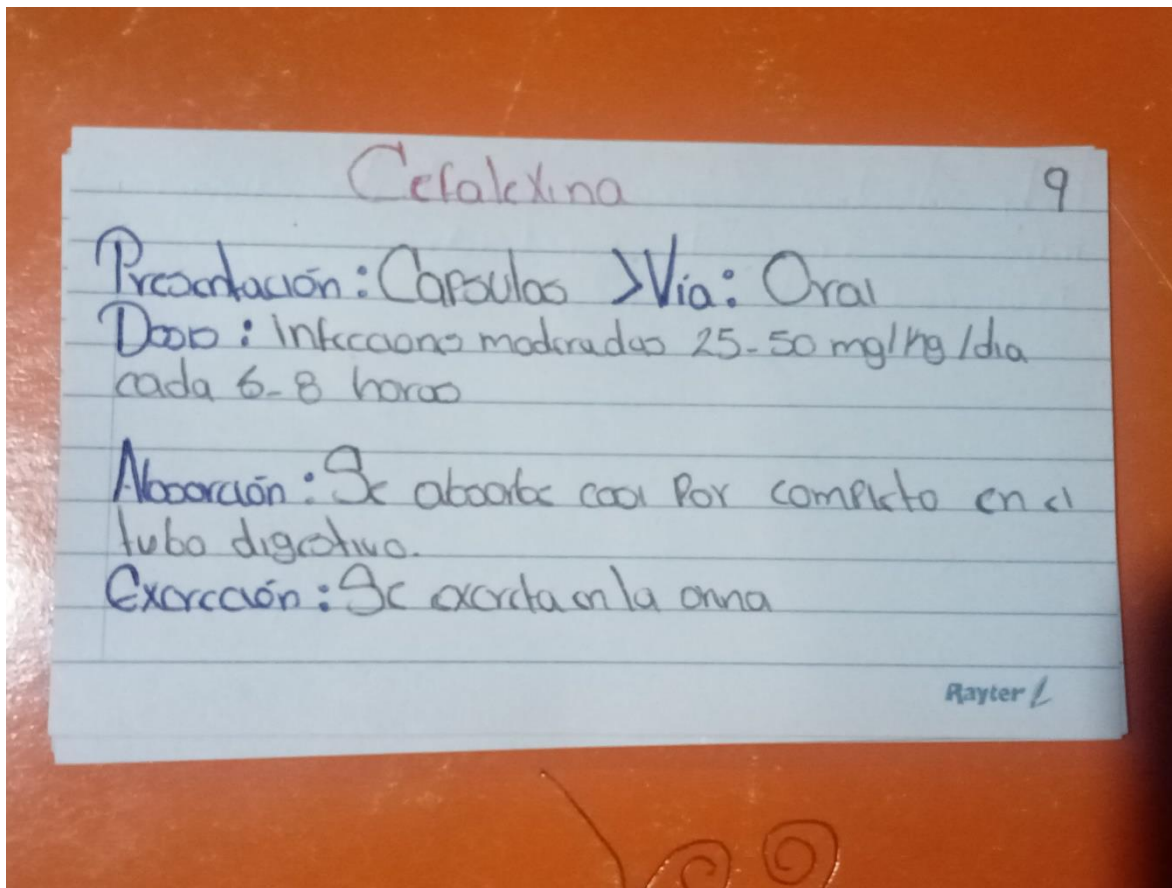 Cefalexina
9
Presentación: Capsulas >Vía: Oral
Dosis: Infecciones moderadas 25-50 mg/kg/dia
cada 6-8 horas
Absorción: Se absorbe casi Por completo en el
tubo digestivo.
Excreción: Se excreta en la orina
Rayter